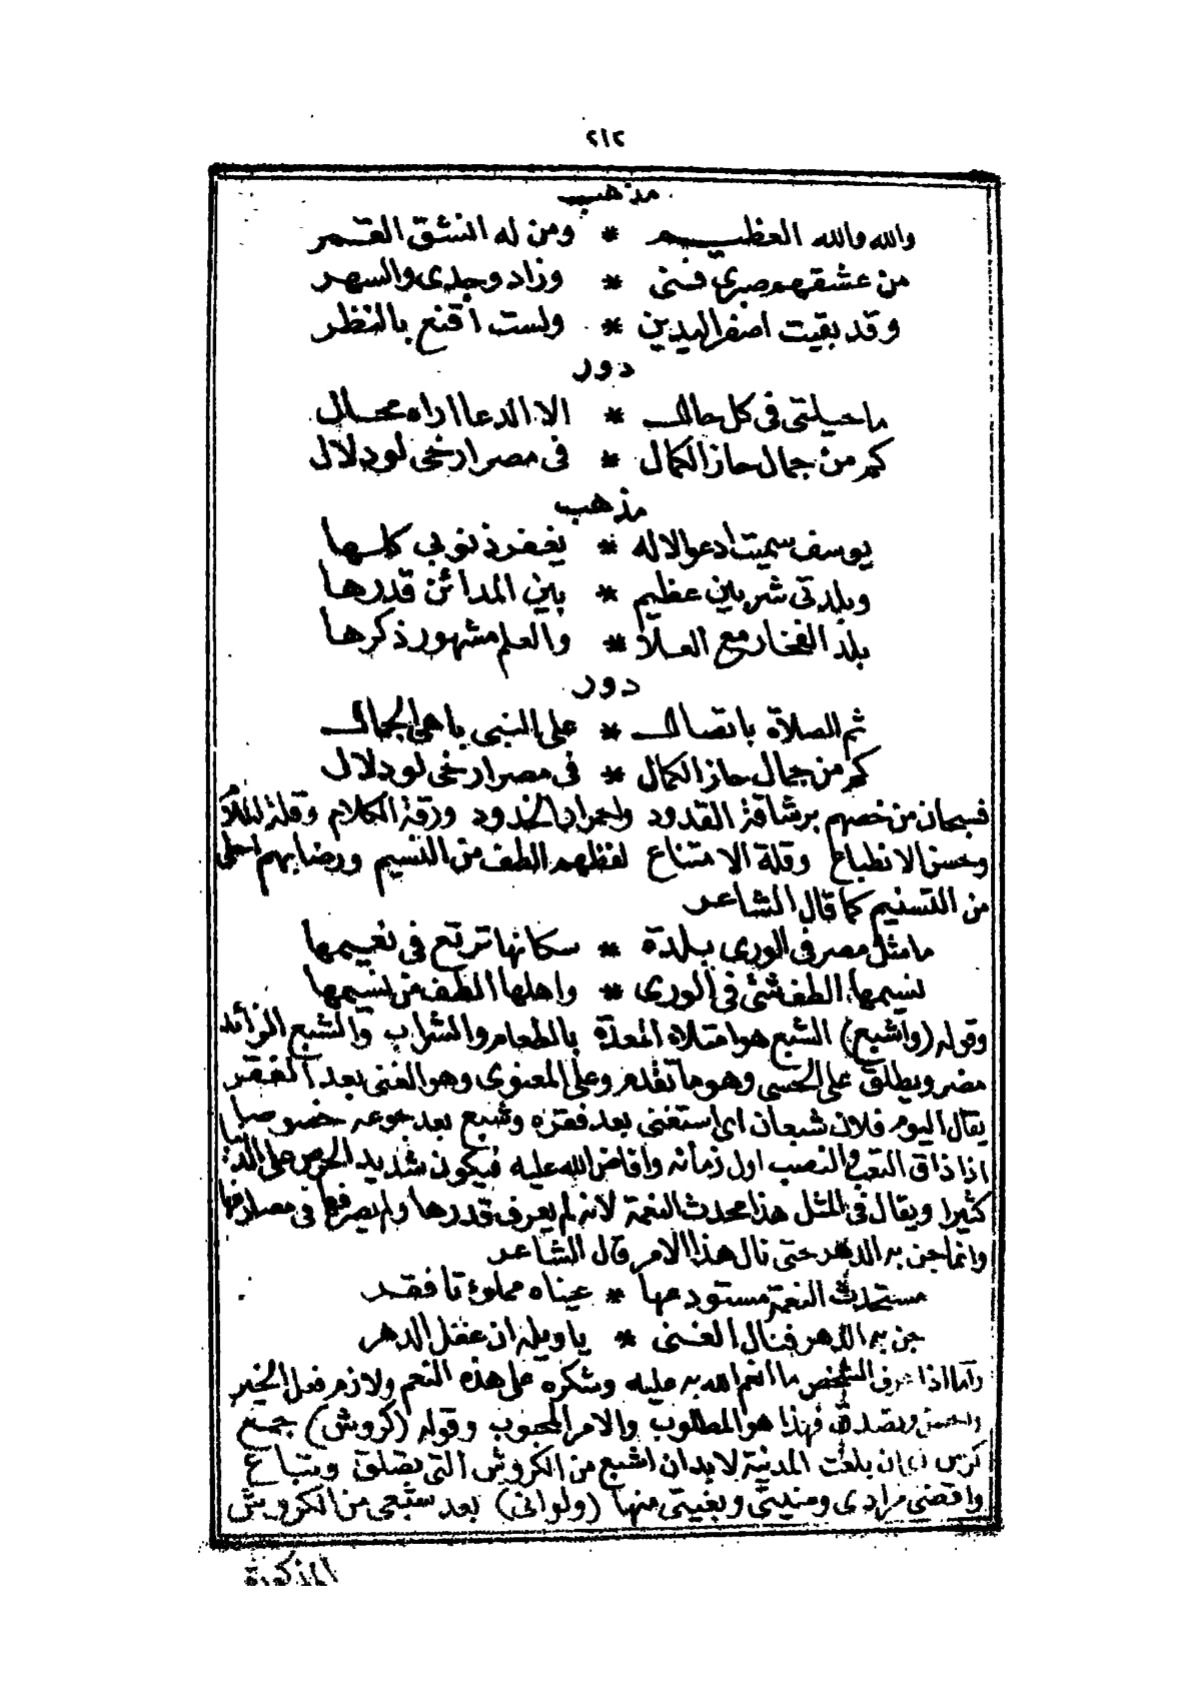 ٢١٢
مذهب
والله والله العظيم * ومن له انشق القمر
من عشقهم صبرى فنى * وزاد وجدى والسهر
وقد بقيت اصفر اليدين * ولست اقنع بالنظر
دور
ما حيلتى فى كل حال * الا الدعا اراه محال
كم من جمال حاز الكمال * فى مصر ارخى لو دلال
مذهب
يوسف سميت ادعو الاله * يغفر ذنوبي كلها
وبلدتى شربين عظيم * بين المدائن قدرها
بلد الفخار مع العلا * والعلم مشهور ذكرها
دور
ثم الصلاة باتصال * على النبى باهى الجمال
كم من جمال حاز الكمال * فى مصر ارخى لو دلال
فسبحان من خصهم برشاقة القدود واحمرار الخدود ورقة الكلام وقلة
وحسن الانطباع وقلة الامتناع لفظهم الطف من النسيم ورضابهم احلى
من التسنيم كما قال الشاعر
ما مثل مصر فى الورى بلدة * سكانها ترتع فى نعيمها
نسيمها الطف شئ فى الورى * واهلها الطف من نسيمها
وقوله (واشبع) الشبع هو امتلاء المعدة بالطعام والشراب والشبع الزائد
مضر ويطلق على الحسى وهو ما تقدم وعلى المعنوى وهو الغنى بعد الفقر
يقال اليوم فلان شبعان اى استغنى بعد فقره وشبع بعد جوعه خصوصا
اذا ذاق التعب والنصب اول زمانه وافاض الله عليه فيكون شديد الحرص على الدنيا
كثيرا ويقال فى المثل هذا محدث النعمة لانه لم يعرف قدرها ولم يصرفها فى مصارفها
وانما جن به الدهر حتى نال هذا الامر قال الشاعر
مستحدث النعمة مستودعها * عيناه مملوءتا فقر
جن به الدهر فنال الغنى * يا ويله ان عقل الدهر
واما اذا عرف الشخص ما انعم الله به عليه وشكره على هذه النعم ولازم فعل الخير
وتصدق فهذا هو المطلوب والامر المحبوب وقوله (كروش) جمع
كرش اى ان بلغت المدينة لابد ان اشبع من الكروش التى تصلق وتباع
واقضى مرادى ومنيتى وبغيتى منها (ولو انى) بعد شبعى من الكروش
المذكورة